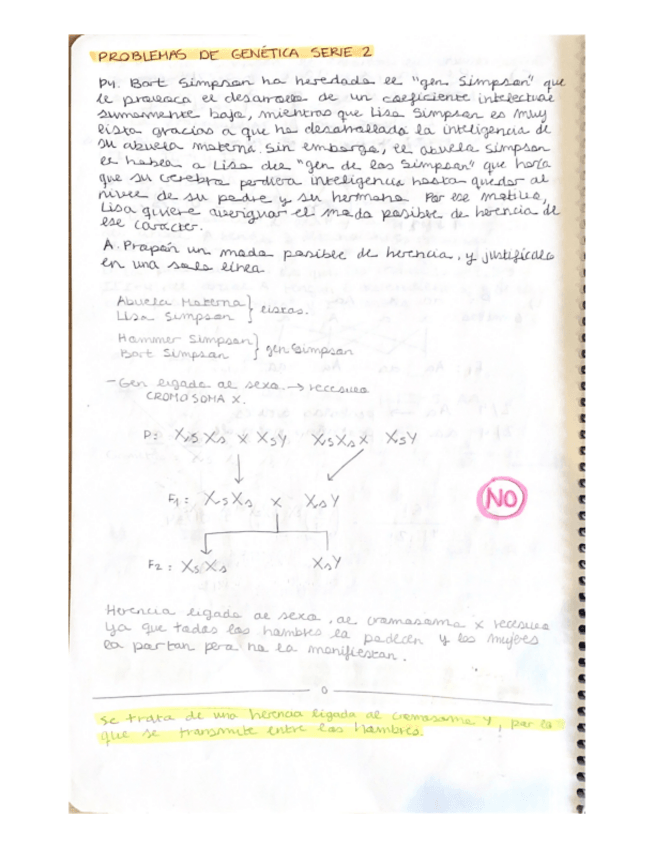 PROBLEMAS DE GENÉTICA SERIE 2
P4. Bart Simpson ha heredado el "gen Simpson" que
le provoca el desarrollo de un coeficiente intelectual
sumamente bajo, mientras que Lisa Simpson es muy
lista gracias a que ha desarrollado la inteligencia de
su abuela materna. Sin embargo, el abuelo Simpson
le habla a Lisa del "gen de los Simpson" que haría
que su cerebro perdiera inteligencia hasta quedar al
nivel de su padre y su hermano. Por ese motivo,
Lisa quiere averiguar el modo posible de herencia de
ese carácter.
A. Propón un modo posible de herencia, y justifícalo
en una sola línea
Abuela Materna
Lisa Simpson } listas.
Hammer Simpson
Bart Simpson } gen Simpson
- Gen ligado al sexo → recesivo
CROMOSOMA X.
P: XsXs x XsY XsXs x XsY
F1: XsXs x XsY
NO
F2: XsXs XsY
Herencia ligada al sexo, al cromosoma x recesivo
ya que todos los hombres la padecen y las mujeres
la portan pero no la manifiestan.
Se trata de una herencia ligada al cromosoma Y, por lo
que se transmite entre los hombres.